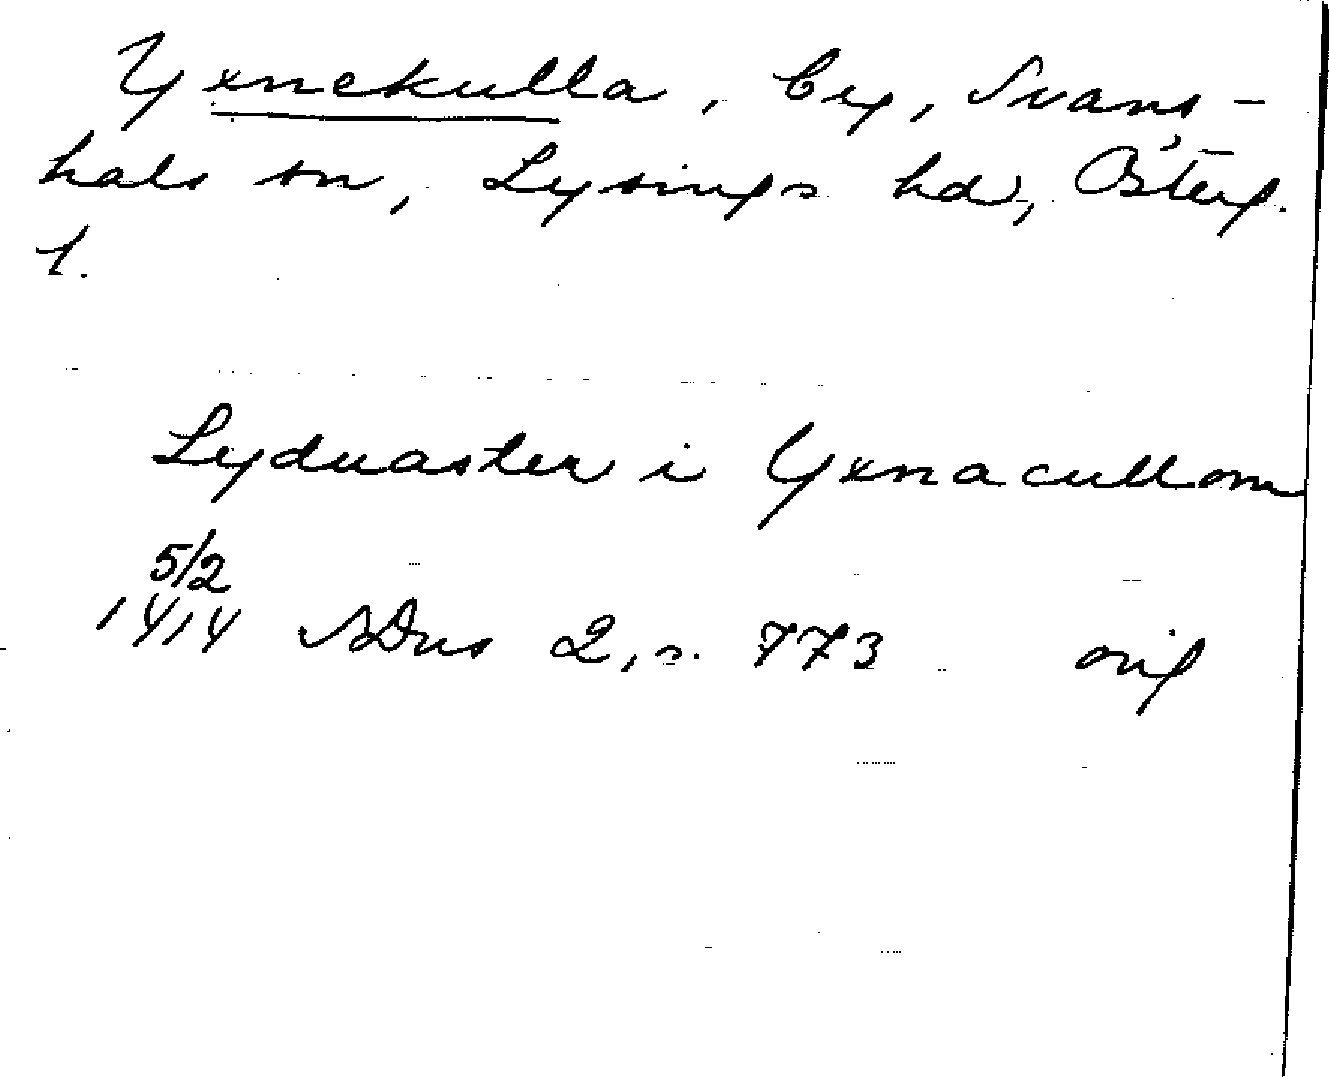 Yxnekulla, by, Svans-
hals sn, Lysings hd, Österg.
l.
Lyduaster i Yxnacullom
5/2
1414 SDns 2, s. 773 orig